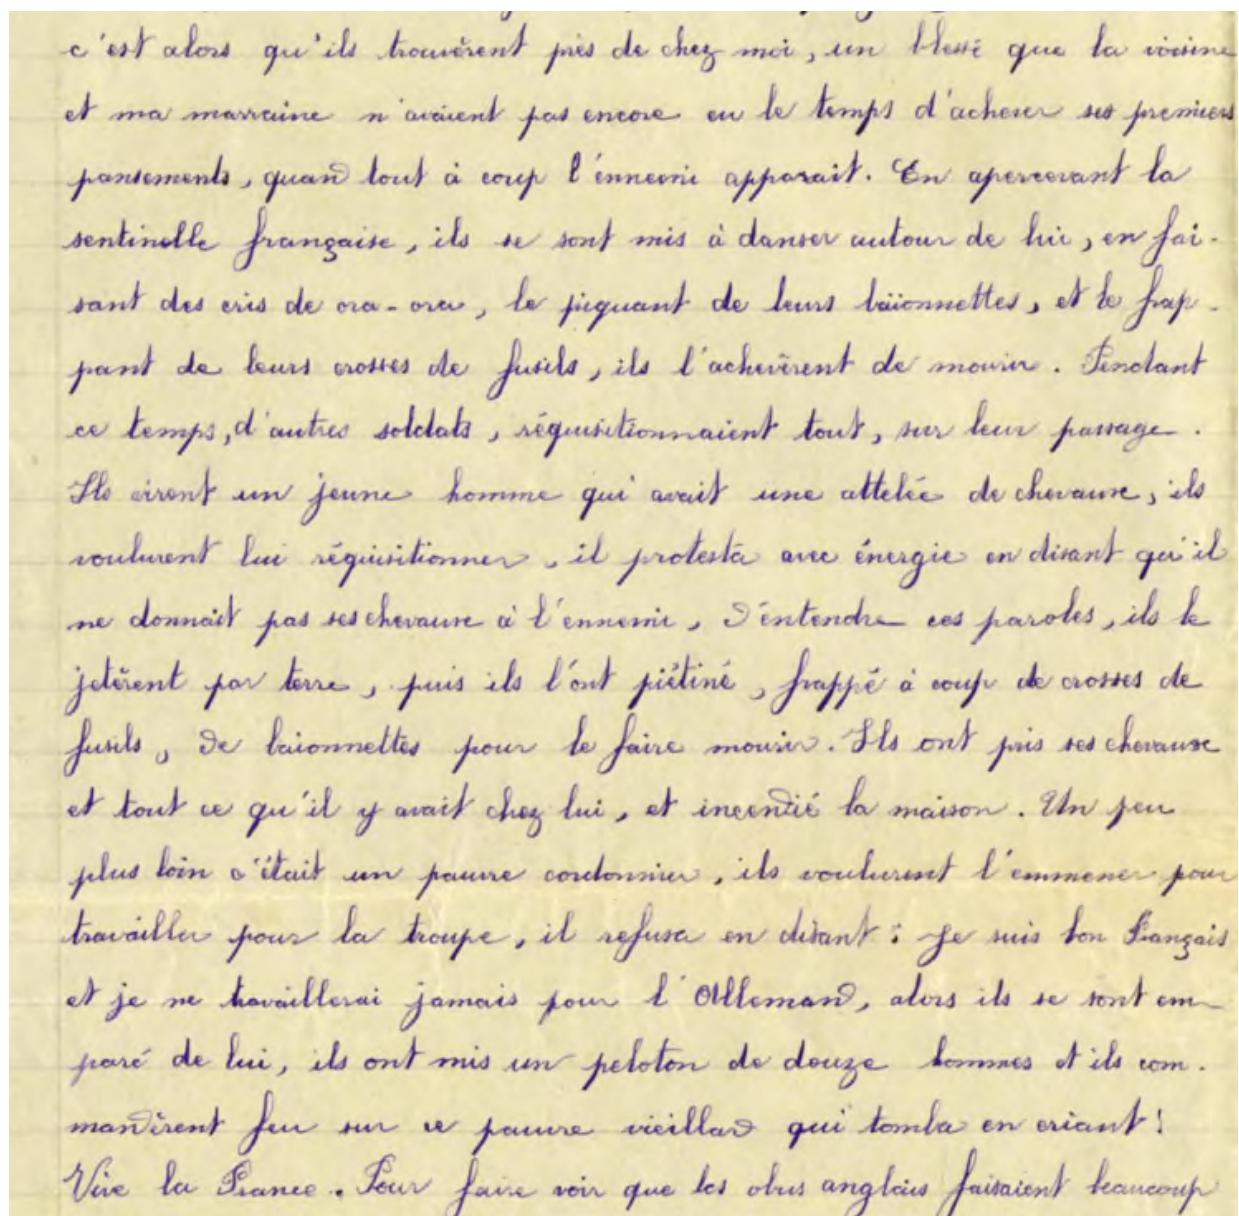 c'est alors qu'ils trouvèrent près de chez moi, un blessé que la voisine
et ma marraine n'avaient pas encore eu le temps d'achever ses premiers
pansements, quand tout à coup l'énnemi apparait. En apercevant la
sentinelle française, ils se sont mis à danser autour de lui, en fai-
sant des cris de ora-ora, le piquant de leurs baïonnettes, et le frap-
pant de leurs crosses de fusils, ils l'achevèrent de mourir. Pendant
ce temps, d'autres soldats, réquisitionnaient tout, sur leur passage.
Ils virent un jeune homme qui avait une attelée de chevaux, ils
voulurent lui réquisitionner, il protesta avec énergie en disant qu'il
ne donnait pas ses chevaux à l'ennemi, D'entendre ces paroles, ils le
jetèrent par terre, puis ils l'ont piétiné, frappé à coup de crosses de
fusils, de baionnettes pour le faire mourir. Ils ont pris ses chevaux
et tout ce qu'il y avait chez lui, et incendié la maison. Un peu
plus loin c'était un pauvre cordonnier, ils voulurent l'emmener pour
travailler pour la troupe, il refusa en disant : Je suis bon Français
et je ne travaillerai jamais pour l'Allemand, alors ils se sont em-
paré de lui, ils ont mis un peloton de douze hommes et ils com-
mandèrent feu sur ce pauvre vieillard qui tomba en criant !
Vive la France. Pour faire voir que les obus anglais faisaient beaucoup